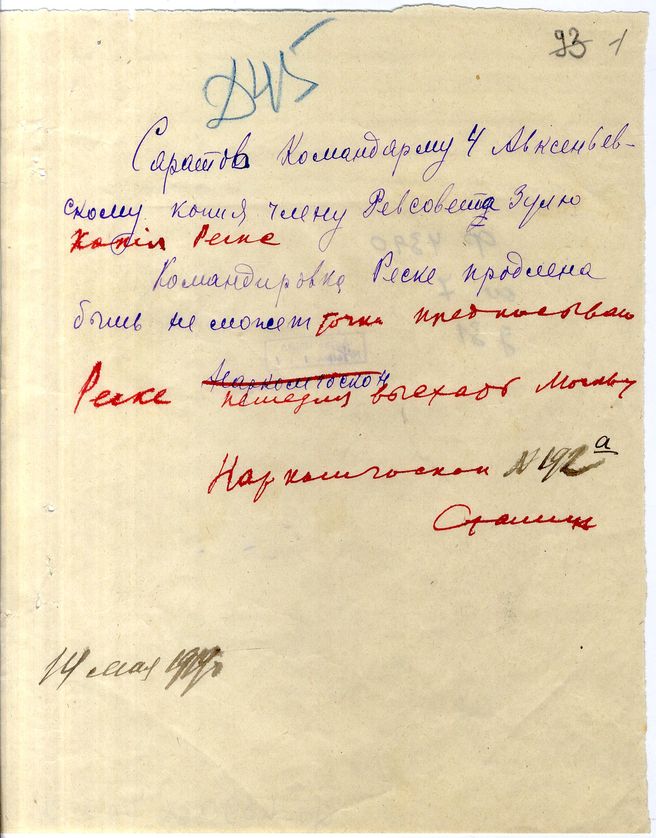 93 1
Саратов Командарму 4 Авксеньев-
скому копия члену Ревсовета Зулю
Копия Реске
Командировка Реске продлена
быть не может точка предписываю
Наркомгоскон
Реске немедля выехать Москву
Наркомгоскон N192а
Сталин
14 мая 1919 г